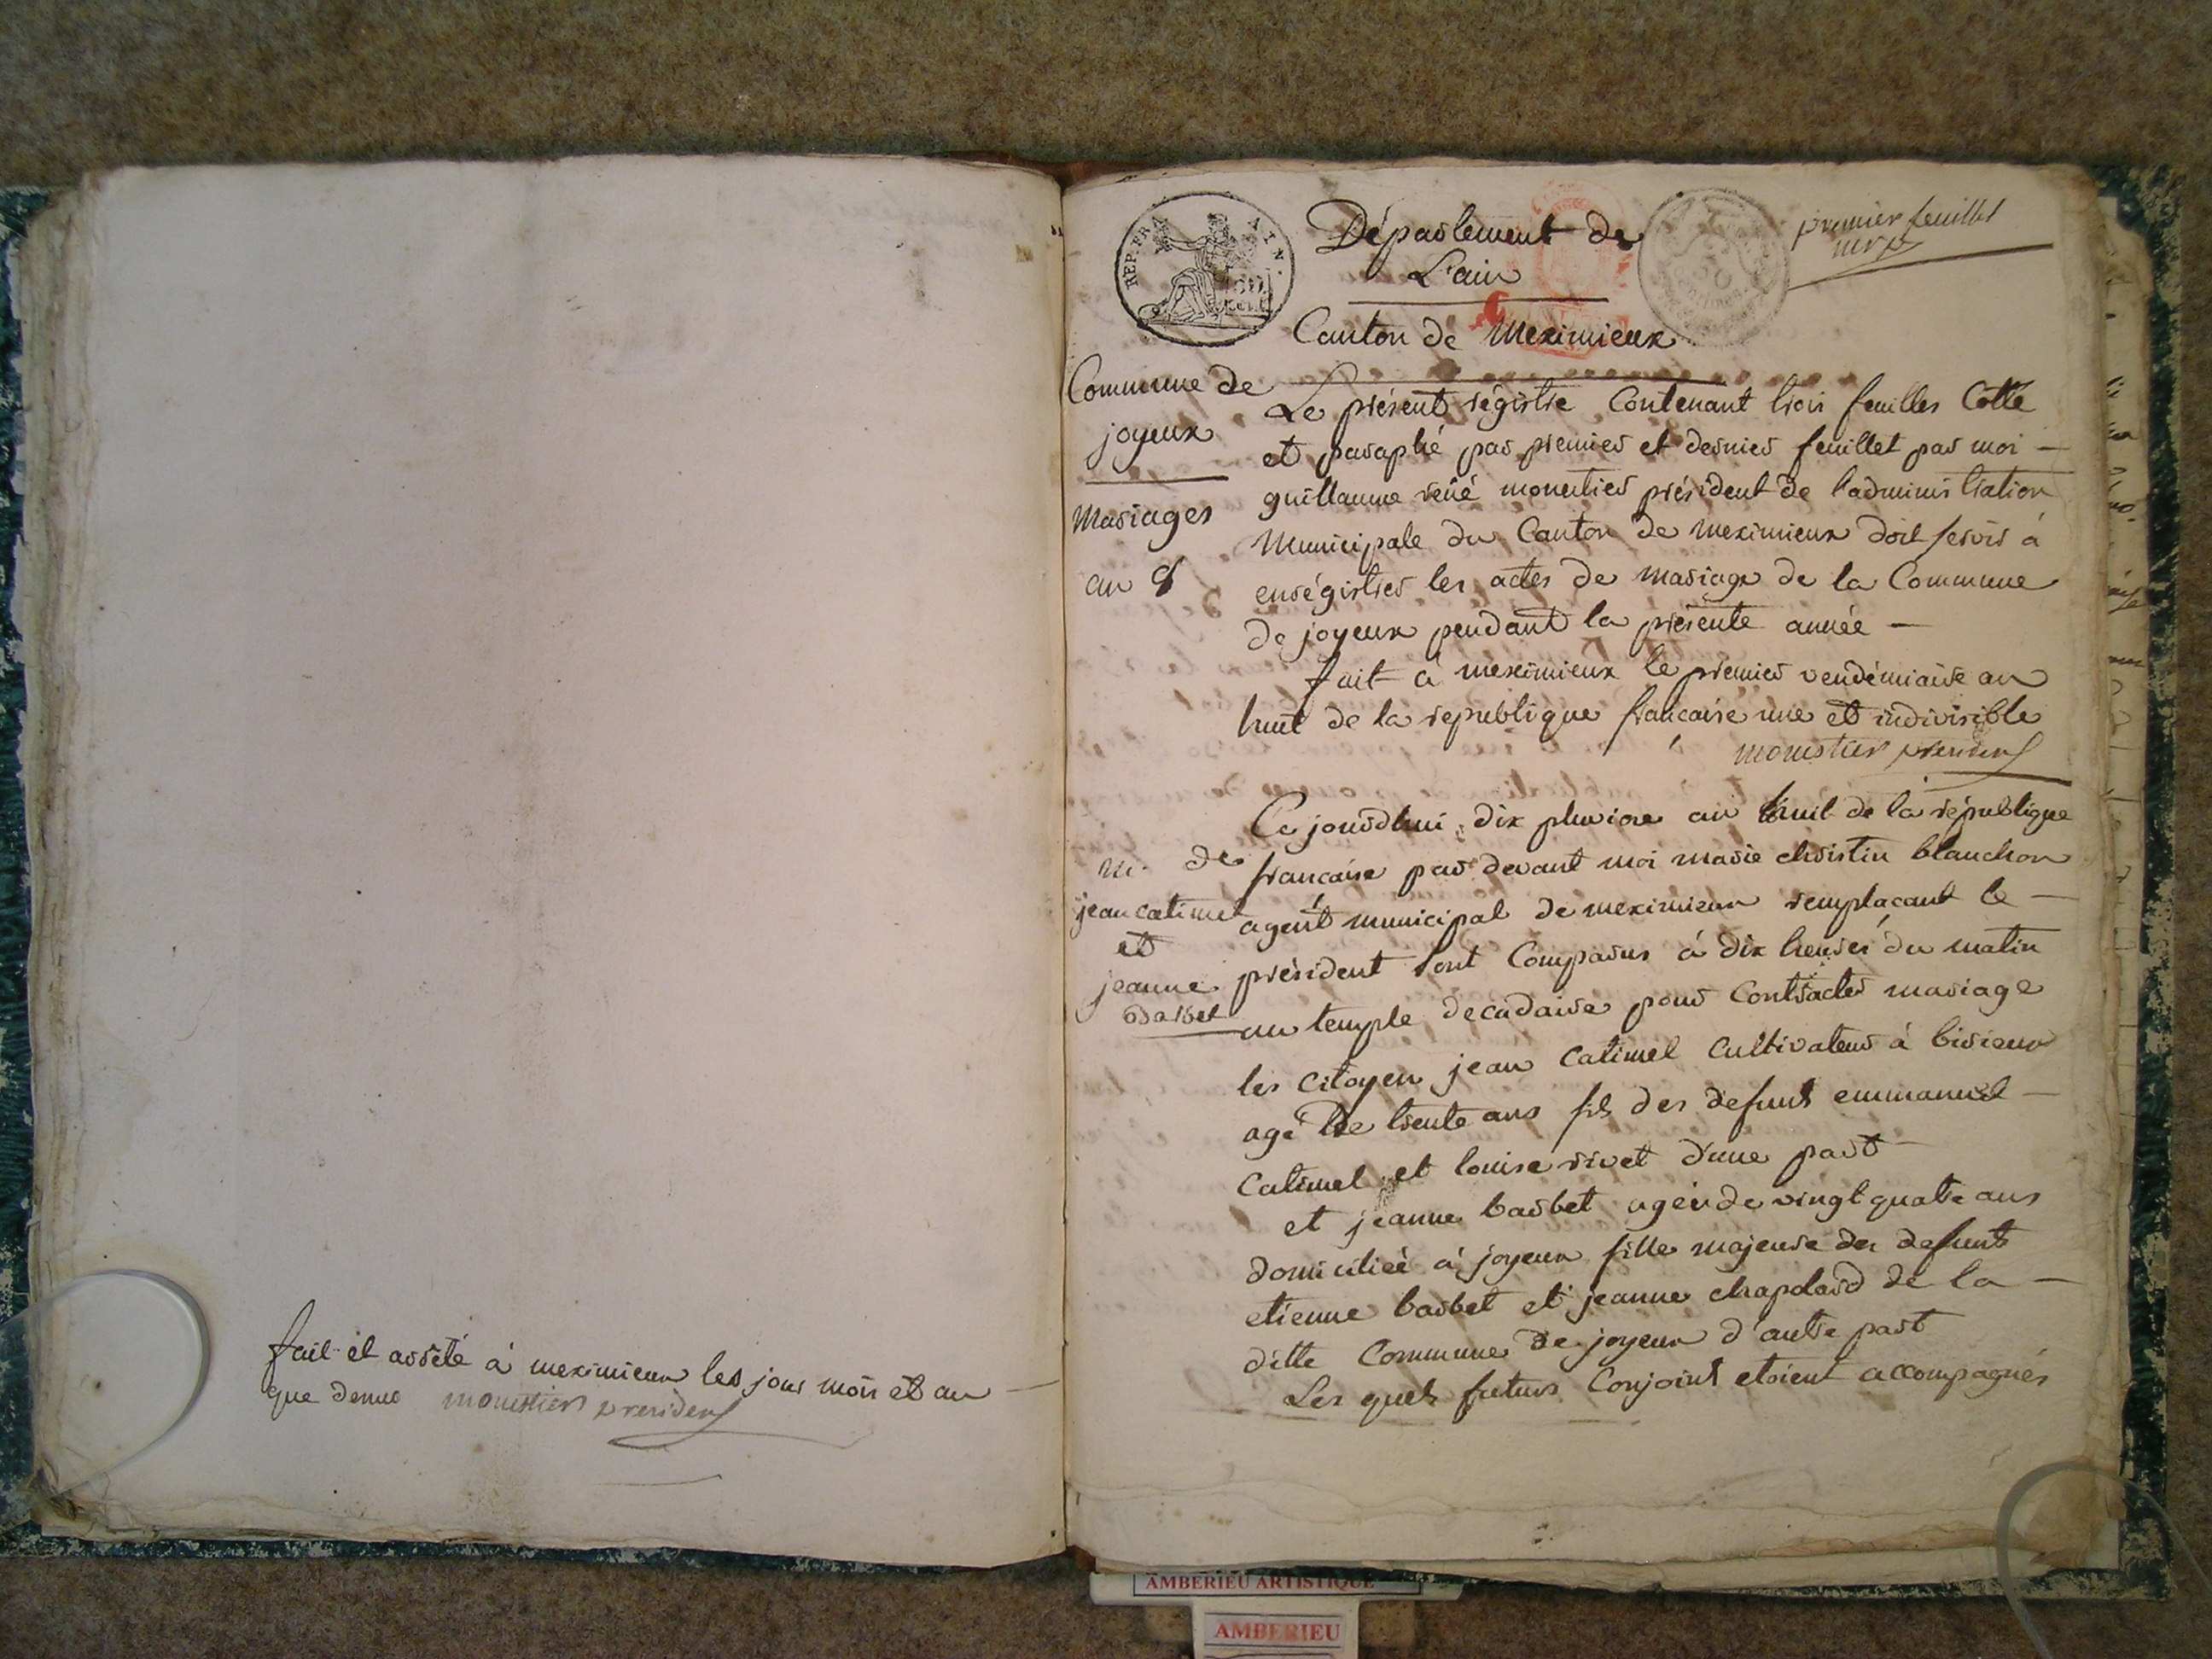 fait et arrêté à meximieux les jour mois et an
que denue monestier president
REP. FRA
AIN.
Département de
L'ain
premier feuillet
Canton de Meximieux
Commune de
joyeux
Mariages
an 8
Le présent régistre Contenant trois feuilles Cotté
et paraphé par premier et dernier feuillet par moi
guillaume réné monestier président de l'administration
Municipale du Canton de meximieux doit servir à
enrégistrer les actes de mariage de la Commune
de joyeux pendant la présente année
fait à meximieux le premier vendémiaire an
huit de la republique française une et indivisible
monestier president
m. de
jean catimel
et
jeanne
Barbet
Ce jourdhui dix pluviose an huit de la république
française par devant moi marie christin blanchon
agent municipal de meximieux remplaçant le
président sont Comparus à dix heures du matin
au temple decadaire pour Contracter mariage
les Citoyen jean Catimel Cultivateur à birieux
agé de trente ans fils des defunts emmanuel
Catimel et louise rivet d'une part
et jeanne barbet agée de vingt quatre ans
domiciliée à joyeux fille majeure des defunts
etienne barbet et jeanne chapolard de la
ditte Commune de joyeux d'autre part
Les quels futurs Conjoints etoient accompagnés
AMBERIEU ARTISTIQUE
AMBERIEU